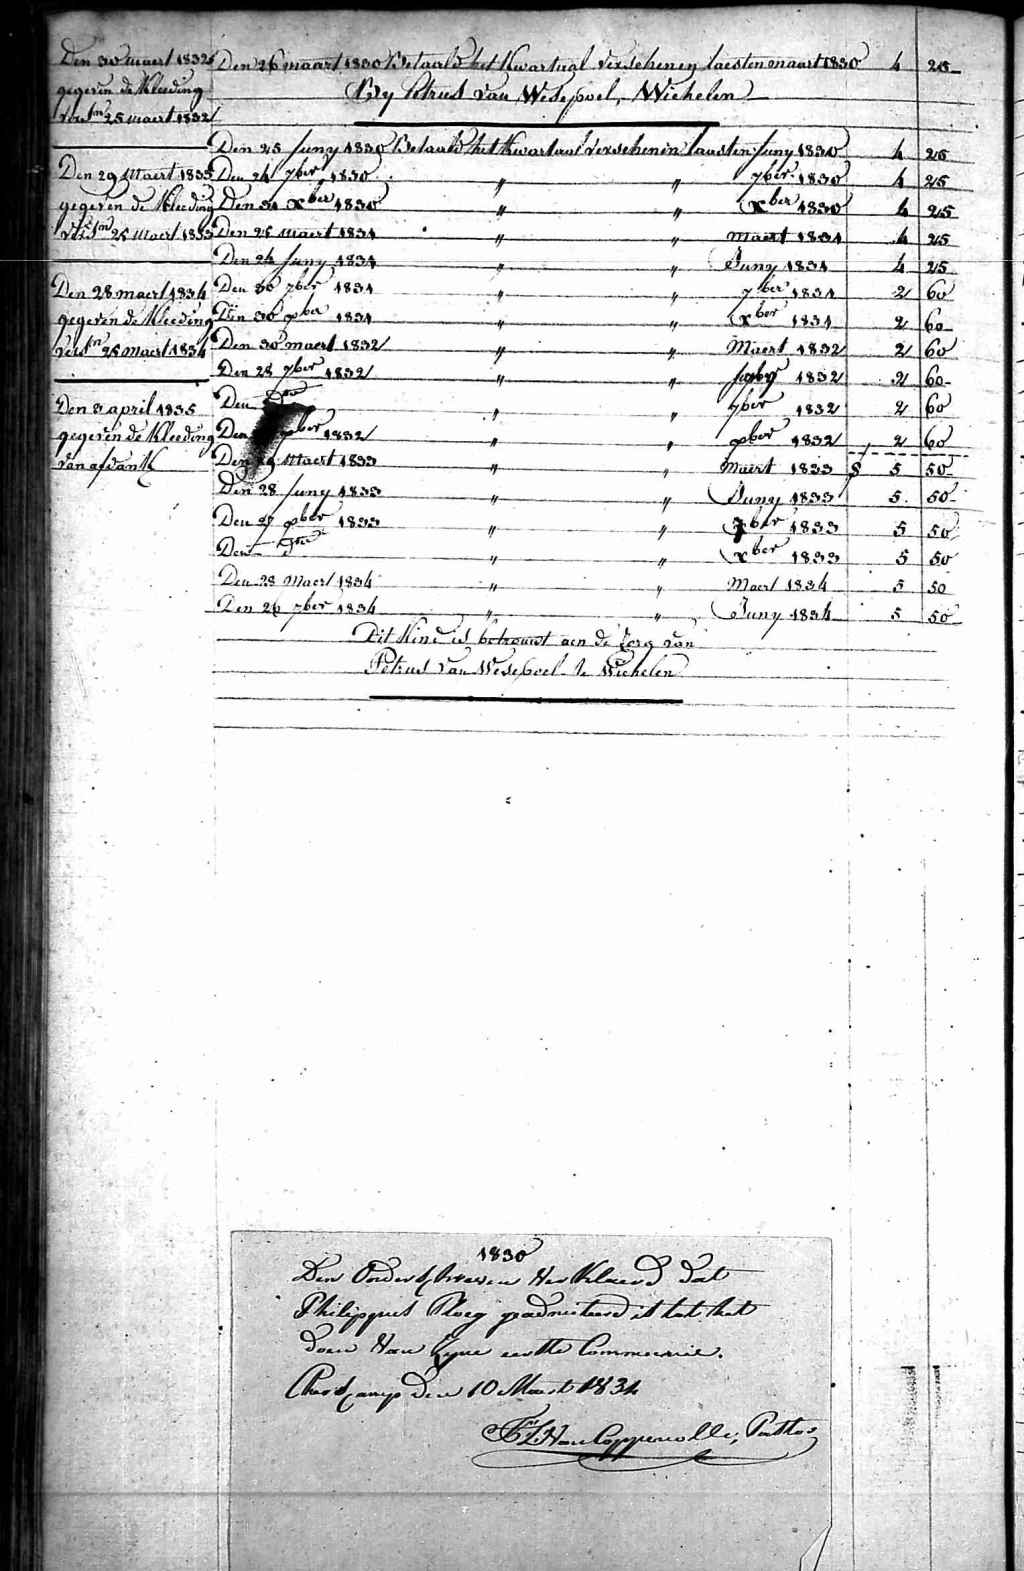 Den 30 maert 1832
gegeven de Kleeding
verstn 25 maert 1832
Den 29 Maert 1833
gegeven de Kleeding
verstn 25 Maert 1833
Den 28 maert 1834
gegeven de Kleeding
verstn 25 Maert 1834
Den 3 april 1835
gegeven de Kleeding
van afdank
Den 26 maart 1830 Betaald het Kwartael verschenen laesten maart 1830 4 25
By Petrus van Wesepoel, Wichelen
Den 25 Juny 1830 Betaald het Kwartael verschenen laesten Juny 1830 4 25
Den 24 7ber 1830 〃 〃 7ber 1830 4 25
Den 31 Xber 1830 〃 〃 Xber 1830 4 25
Den 25 maert 1831 〃 〃 Maert 1831 4 25
Den 24 Juny 1831 〃 〃 Juny 1831 4 25
Den 30 7ber 1831 〃 〃 7ber 1831 2 60
Den 30 xber 1831 〃 〃 Xber 1831 2 60
Den 30 maert 1832 〃 〃 Maert 1832 2 60
Den 28 7ber 1832 〃 〃 1832 2 60
Den 〃 〃 7ber 1832 2 60
Den xber 1832 〃 〃 xber 1832 2 60
Den 29 Maert 1833 〃 〃 Maert 1833 5 50
Den 28 Juny 1833 〃 〃 Juny 1833 5 50
Den 27 xber 1833 〃 〃 7ber 1833 5 50
Den 〃 〃 Xber 1833 5 50
Den 28 Maert 1834 〃 〃 Maert 1834 5 50
Den 26 7ber 1834 〃 〃 Juny 1834 5 50
Dit Kind is betrouwt aen de Zorg van
Petrus Van Wesepoel te Wichelen
1830
Den Onderschreven Verklaerd dat
Philippus Ploeg geadmitteerd is tot het
doen Van Zyne eerste Communie.
den 10 Maert 1834
Van Coppenolle, Pastor